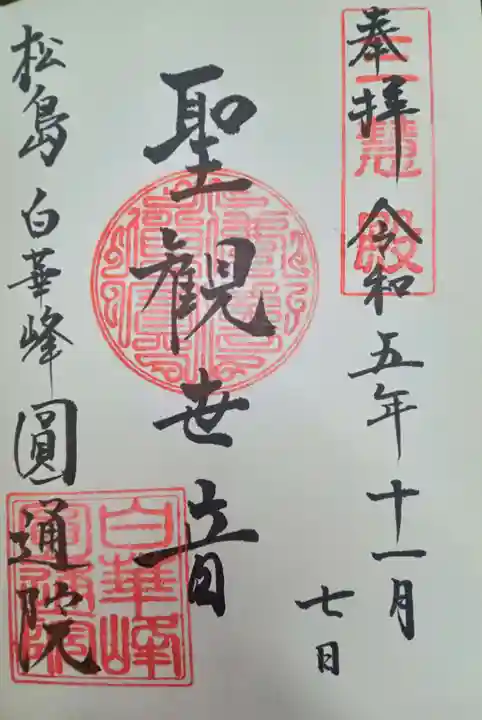 奉拝 令和五年十一月
七日
三慧殿
聖観世音
松島 白華峰 圓通院
白華峰
圓通院